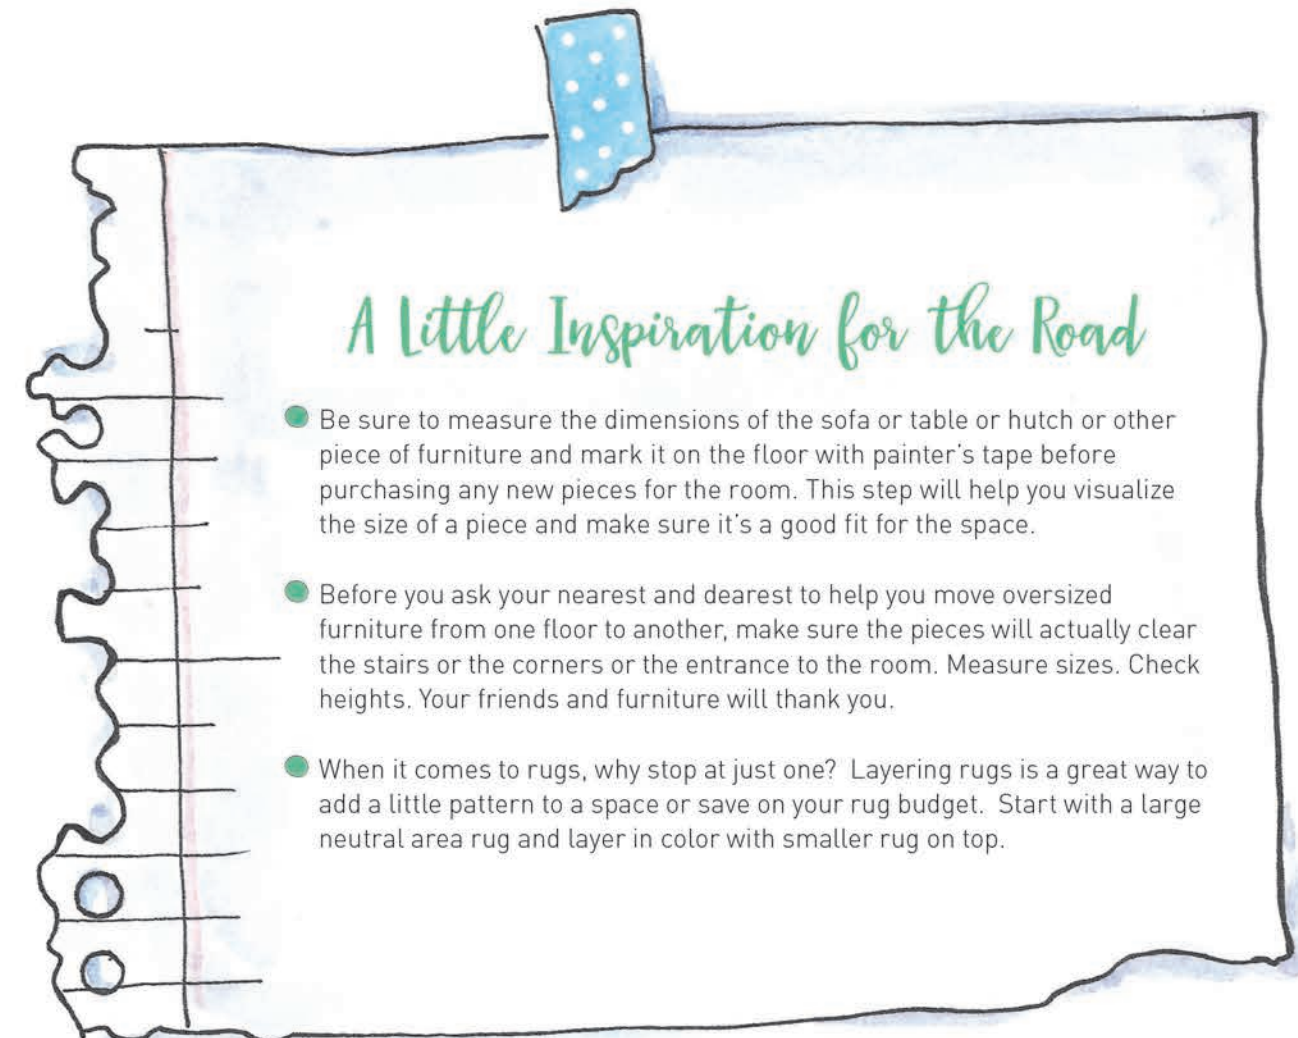 A Little Inspiration for the Road
Be sure to measure the dimensions of the sofa or table or hutch or other
piece of furniture and mark it on the floor with painter's tape before
purchasing any new pieces for the room. This step will help you visualize
the size of a piece and make sure it's a good fit for the space.
Before you ask your nearest and dearest to help you move oversized
furniture from one floor to another, make sure the pieces will actually clear
the stairs or the corners or the entrance to the room. Measure sizes. Check
heights. Your friends and furniture will thank you.
When it comes to rugs, why stop at just one?  Layering rugs is a great way to
add a little pattern to a space or save on your rug budget.  Start with a large
neutral area rug and layer in color with smaller rug on top.